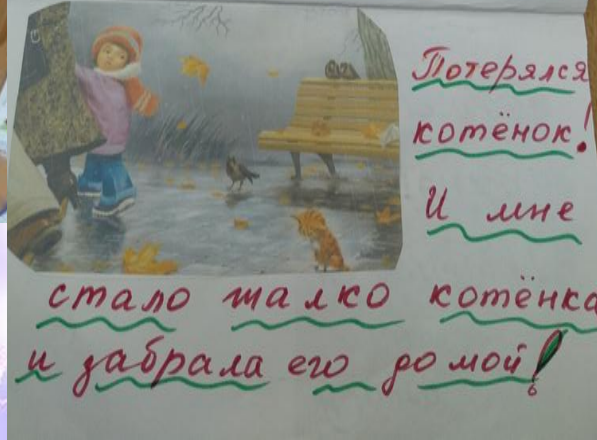 Потерялся
котёнок!
И мне
стало жалко котёнка
и забрала его домой!